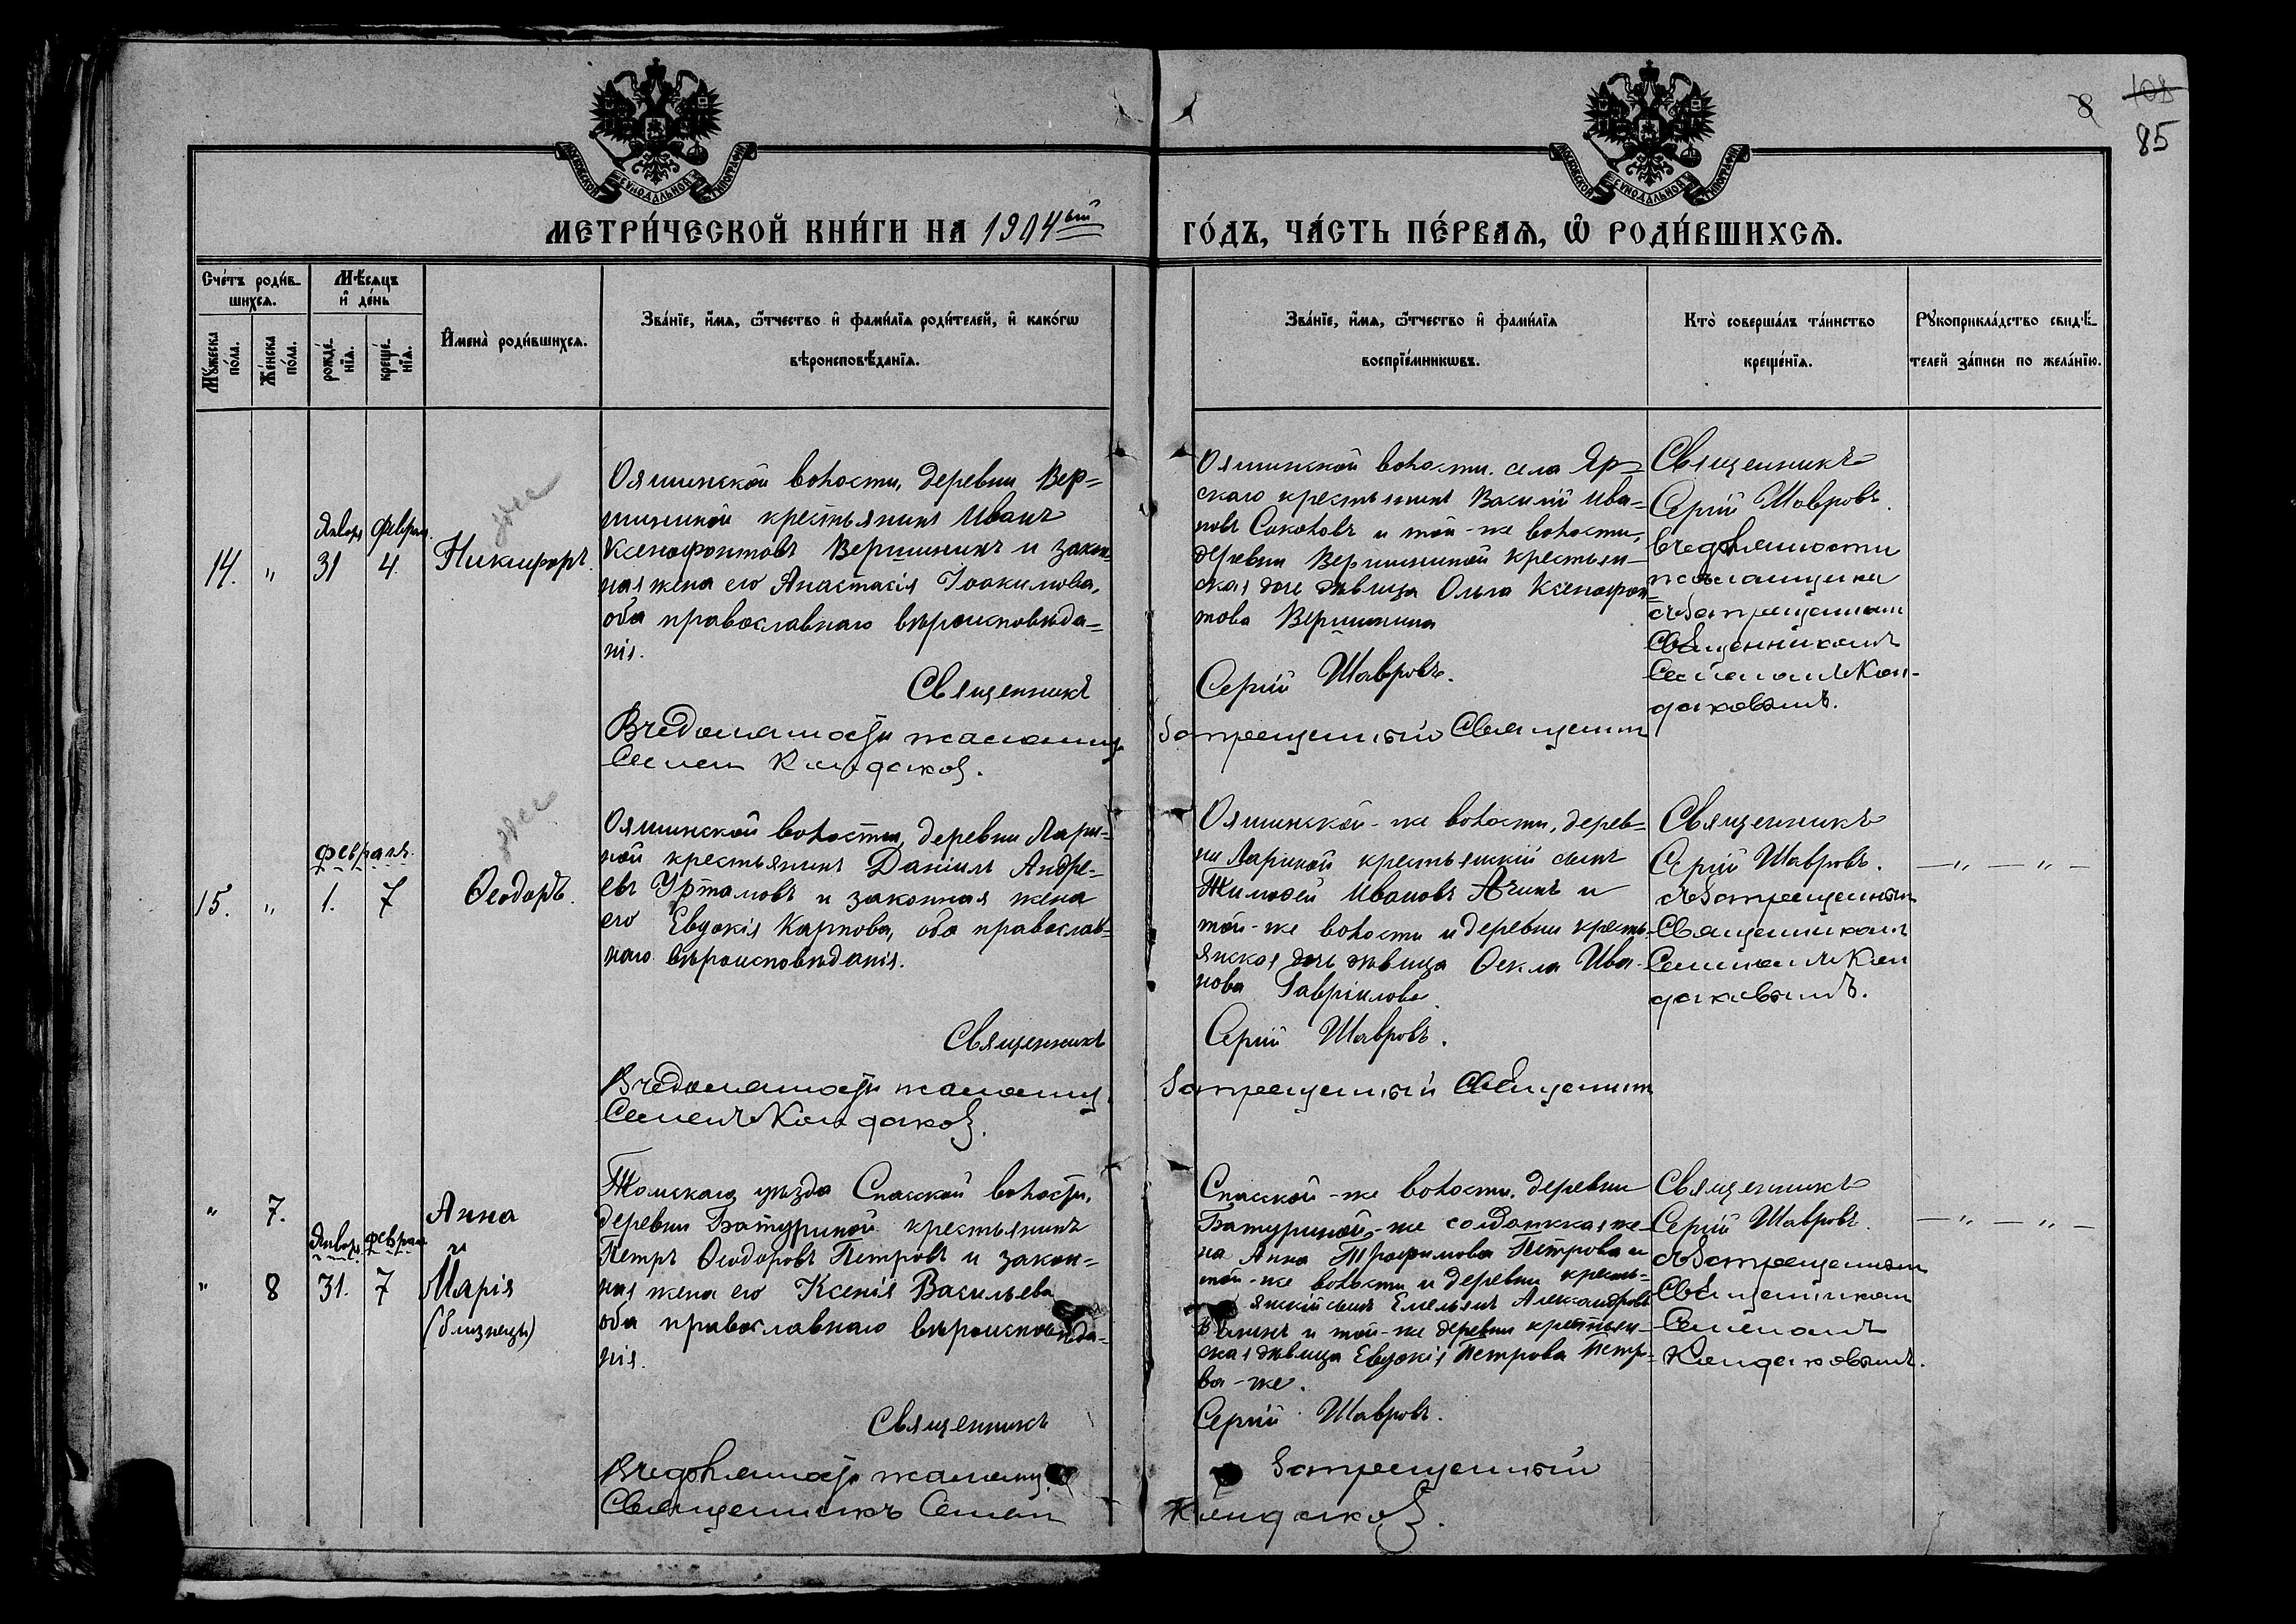 МОСКОВСКОЙ СѴНОДАЛЬНОЙ ТИПОГРАФІИ
МОСКОВСКОЙ СѴНОДАЛЬНОЙ ТИПОГРАФІИ
8
108
85
МЕТРИ́ЧЕСКОЙ КНИ́ГИ НА 1904ый
ГО́ДЪ, ЧА́СТЬ ПЕ́РВАѦ, Ѡ҆ РОДИ́ВШИХСѦ.
Сче́тъ роди́в-
шихсѧ.
Мѣ́сѧцъ
и҆ де́нь
Мꙋ́жеска
по́ла.
Же́нска
по́ла.
рожде́-
нїѧ.
креще́-
нїѧ.
И҆мена̀ роди́вшихсѧ.
Зва́нїе, и҆́мѧ, ѻ҆́тчество и҆ фами́лїѧ роди́телей, и҆ како́гѡ
вѣроисповѣ́данїѧ.
Зва́нїе, и҆́мѧ, ѻ҆́тчество и҆ фами́лїѧ
воспрїе́мникѡвъ.
Кто̀ соверша́лъ та́инство
креще́нїѧ.
Рꙋкоприкла́дство свидѣ́-
телей за́писи по жела́нїю.
14. " Январ. 31 Феврал. 4. Никифоръ.
Ояшинской волости, деревни Вер=
шининой крестьянинъ Иванъ
Ксенофонтовъ Вершининъ и закон=
ная жена его Анастасія Іоакимова,
оба православнаго вѣроисповѣда=
нія.
Священникъ
Семен Кондаков.
Ояшинской волости. села Яр=
скаго крестьянинъ Василій Ива=
новъ Соколовъ и той-же волости,
деревни Вершининой крестьян-
ская дочь дѣвица Ольга Ксенофон=
това Вершинина
Сергій Шавровъ.
Запрещенный Священник
Священникъ
Сергій Шавровъ.
псаломщика
съ запрещенным
Священникомъ
Семеномъ Кон-
даковымъ.
15. " февраля. 1. 7 Ѳеодоръ.
Ояшинской волости, деревни Лари=
ной крестьянинъ Даніилъ Андре-
евъ Уртамовъ и законная жена
его Евдокія Карпова, оба православ=
наго вѣроисповѣданія.
Священникъ
Семенъ Кондаков.
Ояшинской-же волости, дерев=
ни Лариной крестьянскій сынъ
Тимоѳей Ивановъ Ачинъ и
той-же волости и деревни кресть-
янская дочь дѣвица Ѳекла Ива-
нова Гавріилова.
Сергій Шавровъ.
Запрещенный Священник
Священникъ
Сергій Шавровъ.
съ запрещенным
Священникомъ
Семеномъ Кон
даковымъ.
— " — " —
" 7. Анна
Январ. Феврал. и
" 8 31. 7 Марія
(близнецы)
Томскаго уѣзда Спасской волости,
деревни Батуриной крестьянинъ
Петръ Ѳеодоровъ Петровъ и закон=
ная жена его Ксенія Васильева
оба православнаго вѣроисповѣда=
нія.
Священникъ
Священникъ Семен
Спасской-же волости. деревни
Батуриной-же солдатская же-
на Анна Трофимова Петрова и
той-же волости и деревни кресть=
янскій сынъ Емельянъ Александровъ
и той-же деревни крестьян-
ская дѣвица Евдокія Петрова Петро-
ва-же.
Сергій Шавровъ.
Запрещенный
Кондаков.
Священникъ
Сергій Шавровъ.
съ запрещенным
Священником
Семеномъ
Кондаковымъ.
— " — " —